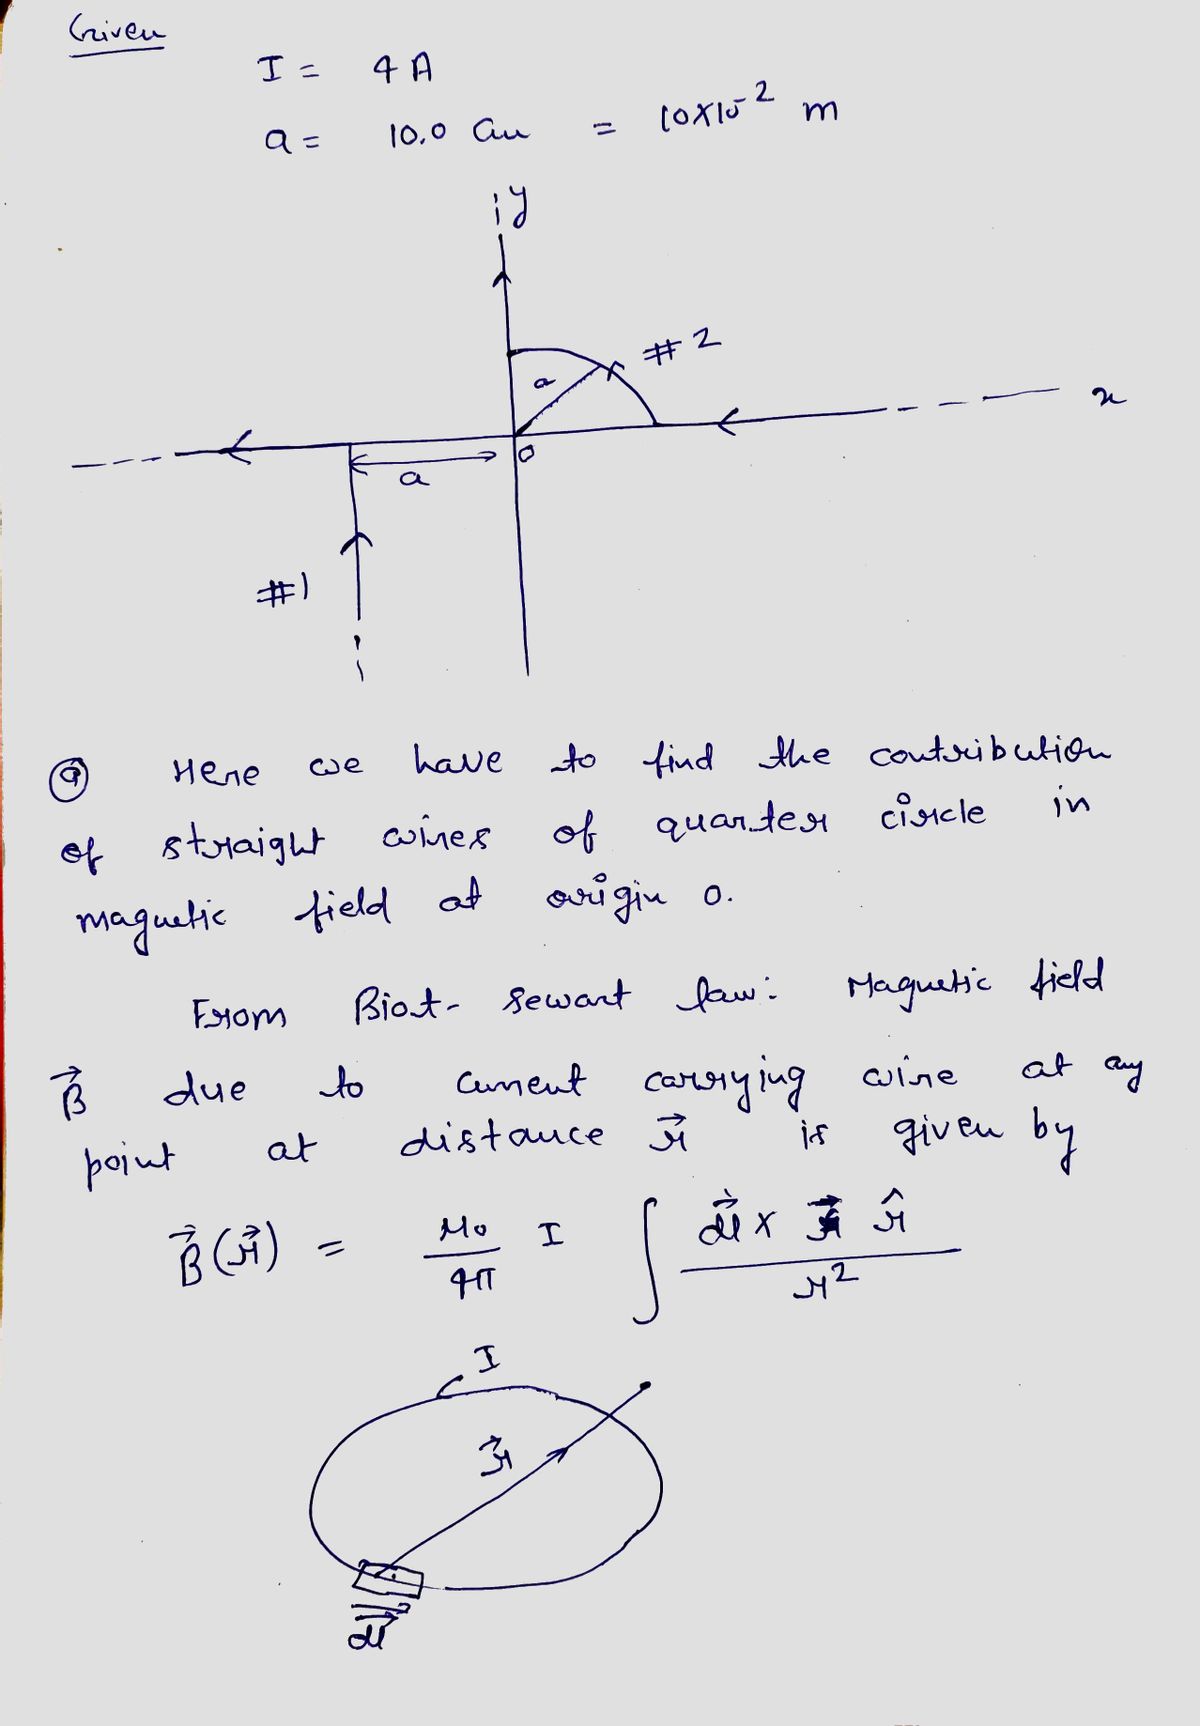 Given
I = 4 A
a = 10.0 cm = 10×10⁻² m
y
#2
a
x
O
a
#1
ⓐ Here we have to find the contribution
of straight wires of quarter circle in
magnetic field at origin O.
From Biot- Sewart law: Magnetic field
B⃗ due to current carrying wire at any
point at distance r⃗ is given by
B⃗(r⃗) = μ₀/4π I ∫ dl⃗ × r̂ / r²
I
r⃗
dl⃗